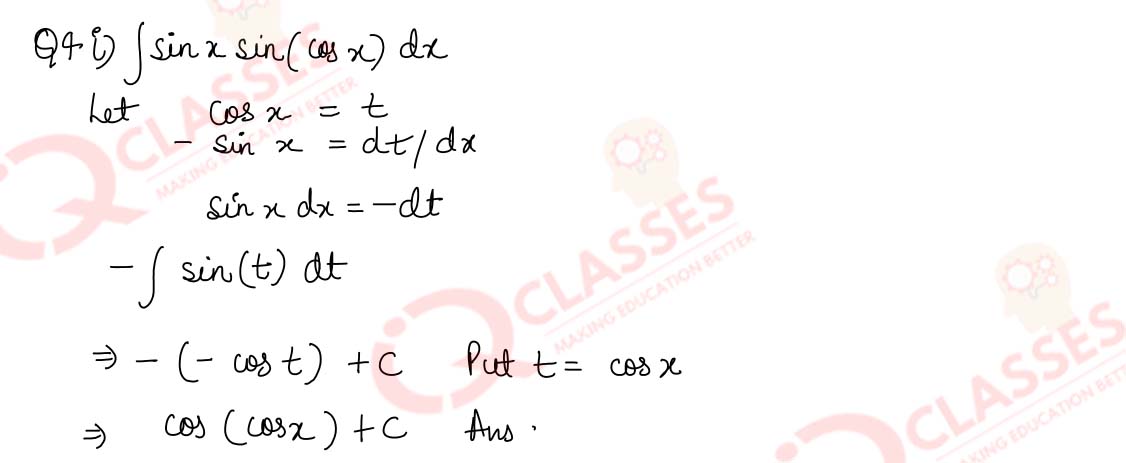 Q4 i) ∫ sin x sin(cos x) dx
Let cos x = t
- sin x = dt/dx
sin x dx = -dt
- ∫ sin(t) dt
⇒ - (- cos t) + C Put t = cos x
⇒ cos (cos x) + C Ans.
CLASSES
MAKING EDUCATION BETTER
CLASSES
MAKING EDUCATION BETTER
CLASSES
MAKING EDUCATION BETT